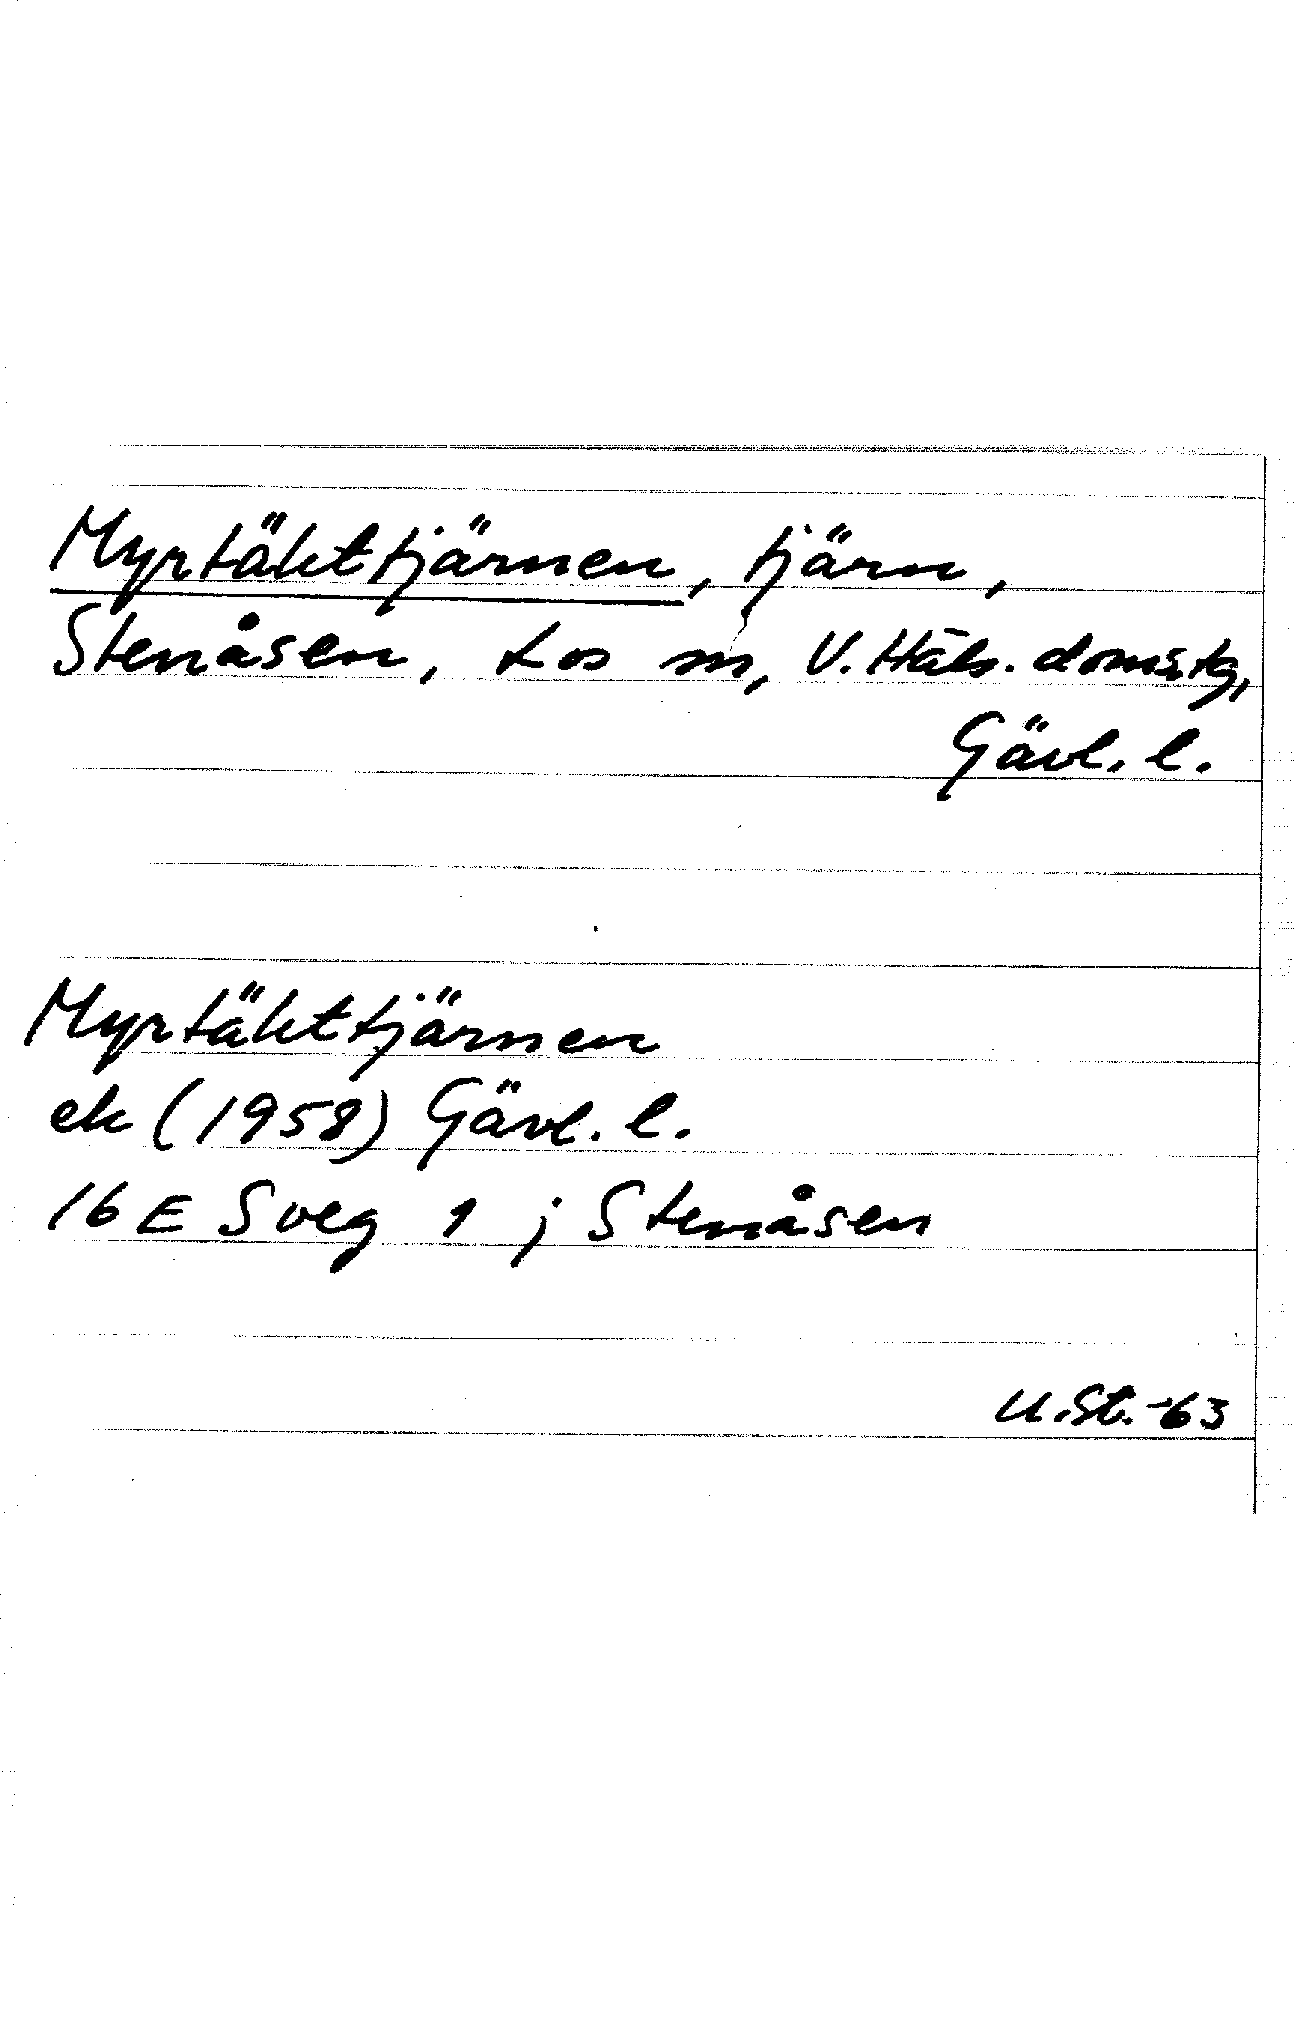 Myrtäkttjärnen, tjärn,
Stenåsen, Los sn, V. Häls. domsag,
Gävl. l.
Myrtäkttjärnen
ek (1958) Gävl. l.
16 E Sveg 1 j Stenåsen
U.St. -63